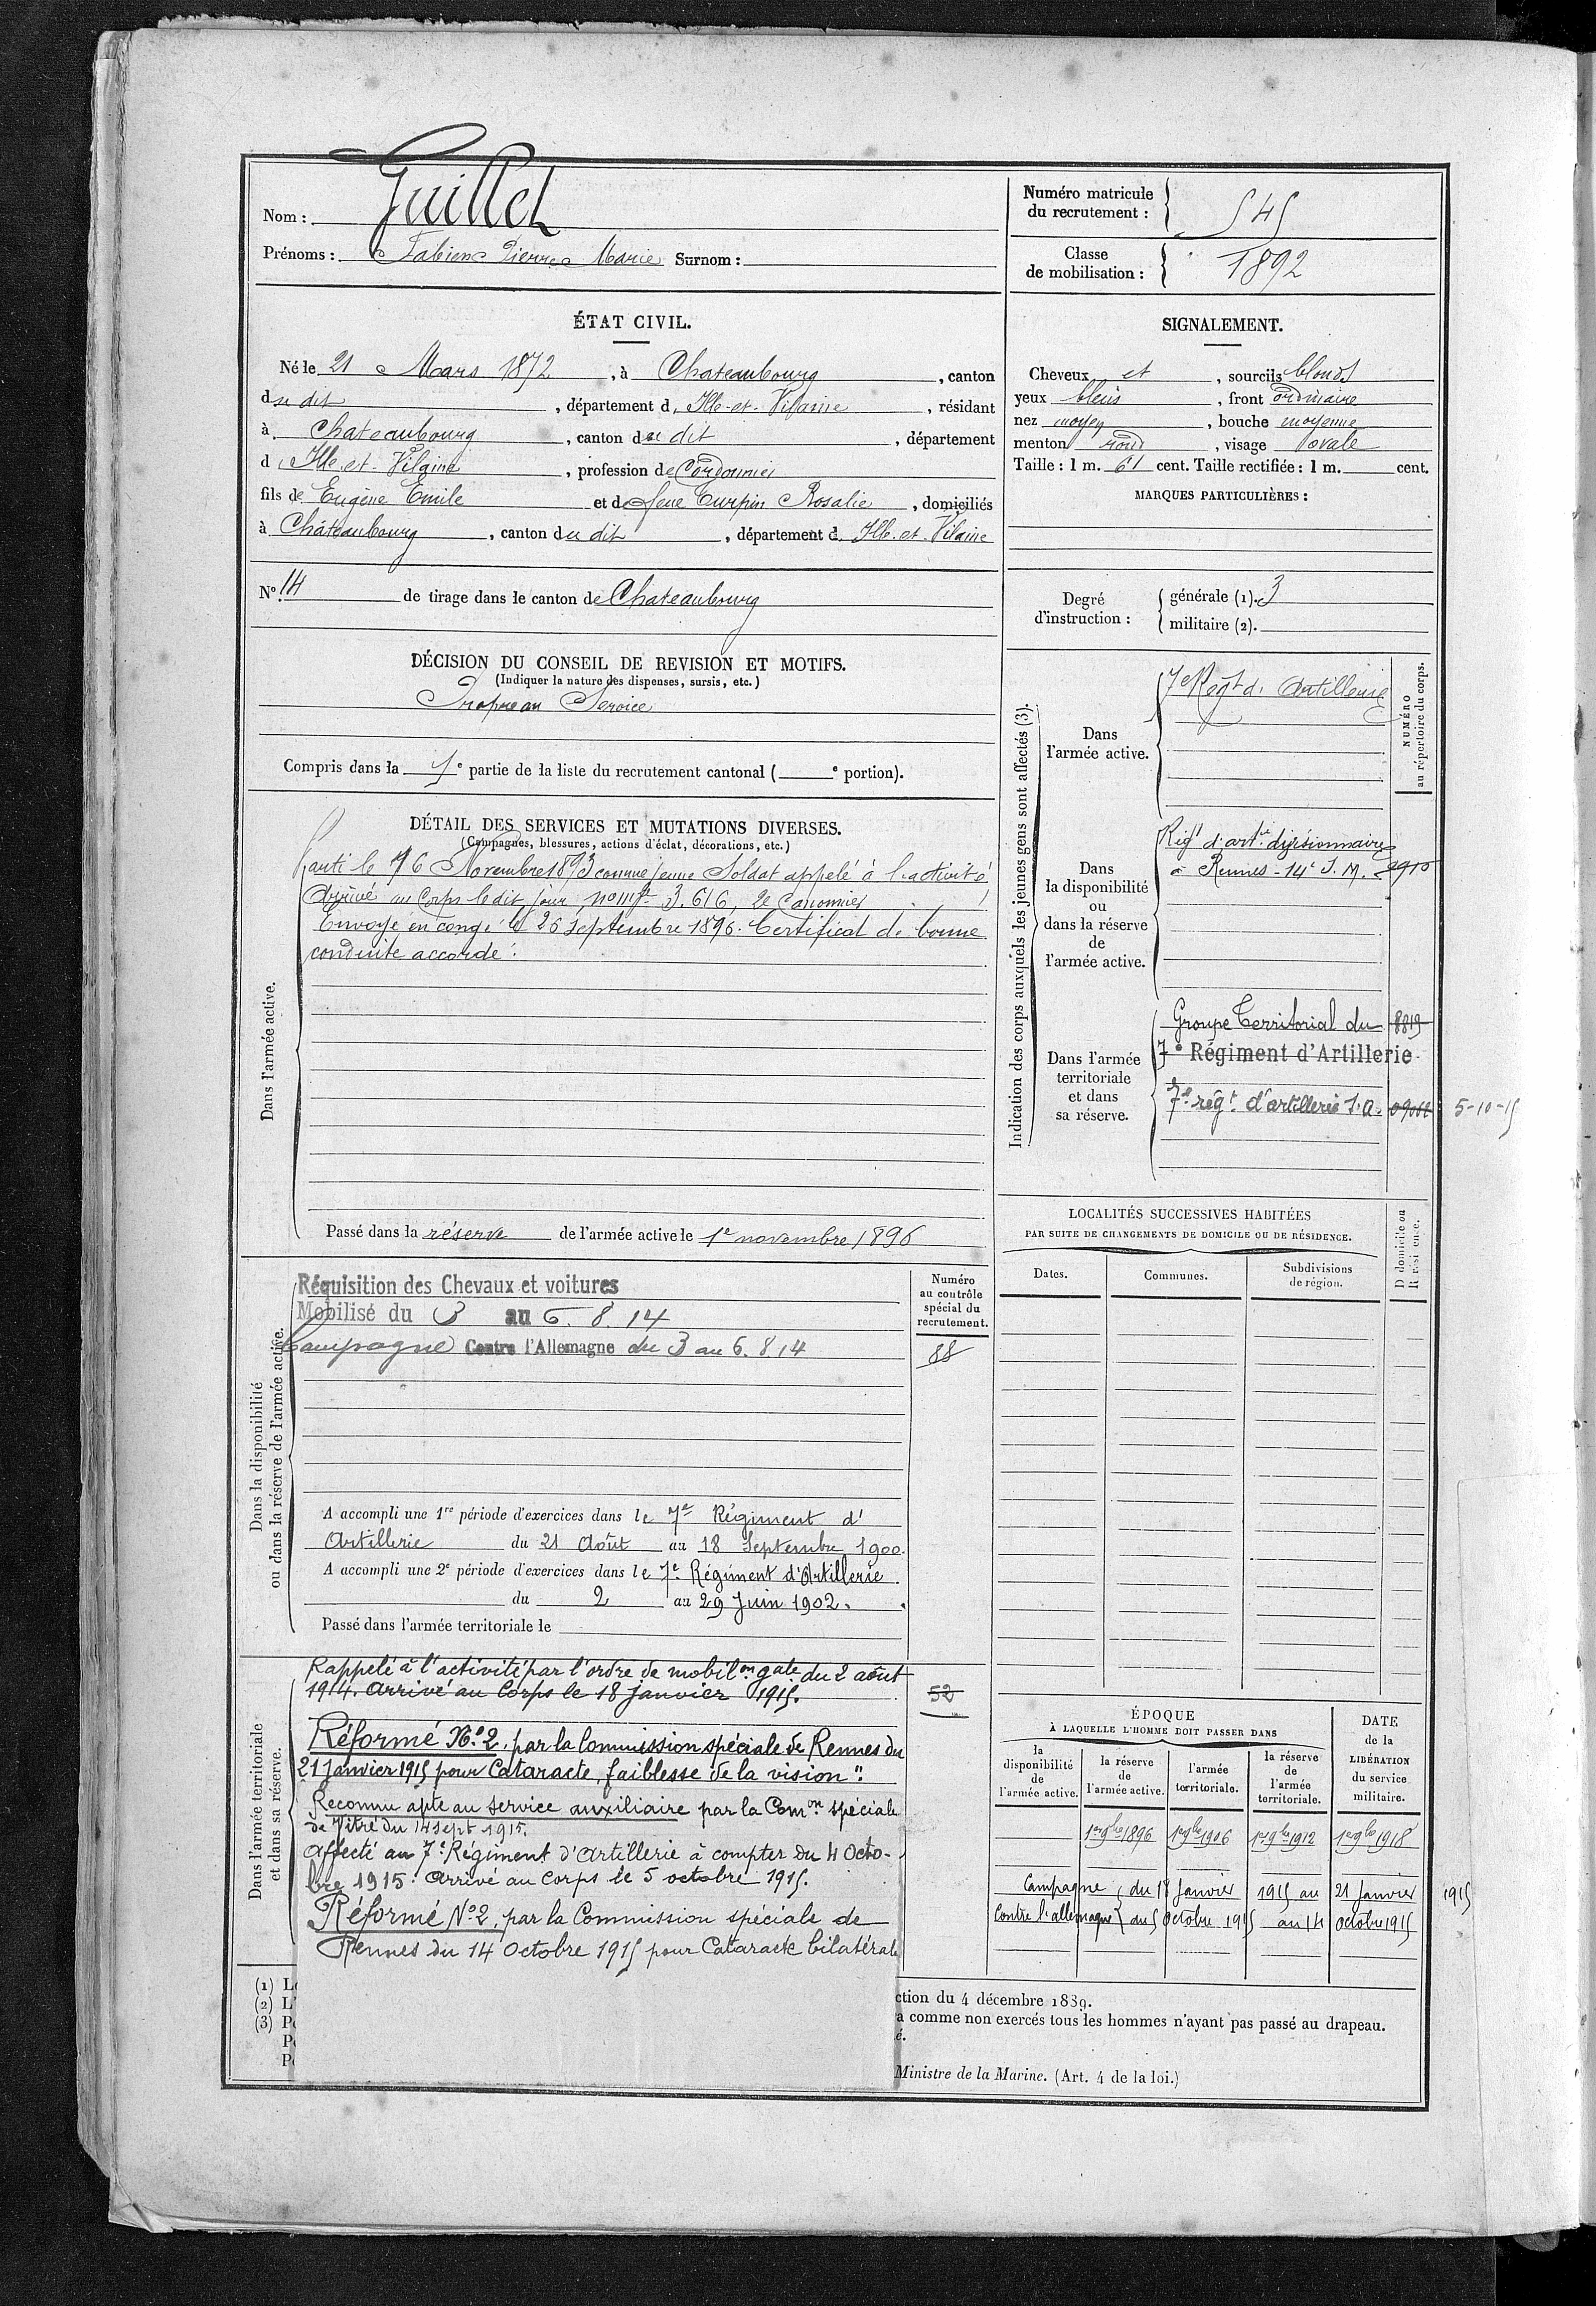 Nom : Guillet
Prénoms : Fabien Pierre Marie Surnom :
Numéro matricule
du recrutement : 545
Classe
de mobilisation : 1892
ÉTAT CIVIL.
Né le 21 Mars 1872, à Chateaubourg, canton
du dit, département d'Ille-et-Vilaine, résidant
à Chateaubourg, canton du dit, département
d'Ille-et-Vilaine, profession de Cordonnier
fils de Eugène Emile et de feue Turpin Rosalie, domiciliés
à Châteaubourg, canton du dit, département d'Ille-et-Vilaine
SIGNALEMENT.
Cheveux et, sourcils blonds
yeux bleus, front ordinaire
nez moyen, bouche moyenne
menton rond, visage ovale
Taille : 1 m. 61 cent. Taille rectifiée : 1 m. cent.
MARQUES PARTICULIÈRES :
N° 14 de tirage dans le canton de Chateaubourg
Degré
d'instruction :
générale (1). 3
militaire (2).
DÉCISION DU CONSEIL DE REVISION ET MOTIFS.
(Indiquer la nature des dispenses, sursis, etc.)
Propre au Service
Compris dans la 1e partie de la liste du recrutement cantonal ( e portion).
DÉTAIL DES SERVICES ET MUTATIONS DIVERSES.
(Campagnes, blessures, actions d'éclat, décorations, etc.)
Dans l'armée active.
Parti le 16 Novembre 1893 comme jeune Soldat appelé à l'activité
Arrivé au Corps le dit jour, no mle 3.616, 2e Canonnier
Envoyé en congé le 26 Septembre 1896. Certificat de bonne
conduite accordé.
Passé dans la réserve de l'armée active le 1e novembre 1896
Indication des corps auxquels les jeunes gens sont affectés (3).
NUMÉRO
au répertoire du corps.
Dans
l'armée active.
7e Régt d'Artillerie
Dans
la disponibilité
ou
dans la réserve
de
l'armée active.
Régt d'artie divisionnaire
à Rennes - 14e S. M.
Dans l'armée
territoriale
et dans
sa réserve.
Groupe Territorial du 8819
7e Régiment d'Artillerie
7e régt d'artillerie S.A. 5-10-15
LOCALITÉS SUCCESSIVES HABITÉES
PAR SUITE DE CHANGEMENTS DE DOMICILE OU DE RÉSIDENCE.
Dates.
Communes.
Subdivisions
de région.
Dans la disponibilité
ou dans la réserve de l'armée active.
Numéro
au contrôle
spécial du
recrutement.
88
Réquisition des Chevaux et voitures
Mobilisé du 3 au 6. 8. 14
Campagne Contre l'Allemagne du 3 au 6. 8 14
A accompli une 1re période d'exercices dans le 7e Régiment d'
Artillerie du 21 Août au 18 Septembre 1900.
A accompli une 2e période d'exercices dans le 7e Régiment d'Artillerie
du 2 au 29 Juin 1902.
Passé dans l'armée territoriale le
Dans l'armée territoriale
et dans sa réserve.
Rappelé à l'activité par l'ordre de mobilon gale du 2 août
1914. Arrivé au Corps le 18 janvier 1915.
52
Réformé No 2, par la Commission spéciale de Rennes du
21 Janvier 1915 pour "Cataracte, faiblesse de la vision".
Reconnu apte au service auxiliaire par la Comon spéciale
de Vitré du 14 sept 1915.
Affecté au 7e Régiment d'Artillerie à compter du 4 Octo-
bre 1915. Arrivé au corps le 5 octobre 1915.
Réformé No 2, par la Commission spéciale de
Rennes du 14 Octobre 1915 pour Cataracte bilatérale
ÉPOQUE
À LAQUELLE L'HOMME DOIT PASSER DANS
la
disponibilité
de
l'armée active.
la réserve
de
l'armée active.
l'armée
territoriale.
la réserve
de
l'armée
territoriale.
DATE
de la
LIBÉRATION
du service
militaire.
1er 9bre 1896 1er 9bre 1906 1er 9bre 1912 1er 9bre 1918
Campagne { du 18 Janvier 1915 au 21 Janvier 1915
Contre l'allemagne } du 5 Octobre 1915 au 14 Octobre 1915
(1) L
(2) L'
(3) P
ction du 4 décembre 1889.
a comme non exercés tous les hommes n'ayant pas passé au drapeau.
é.
Ministre de la Marine. (Art. 4 de la loi.)